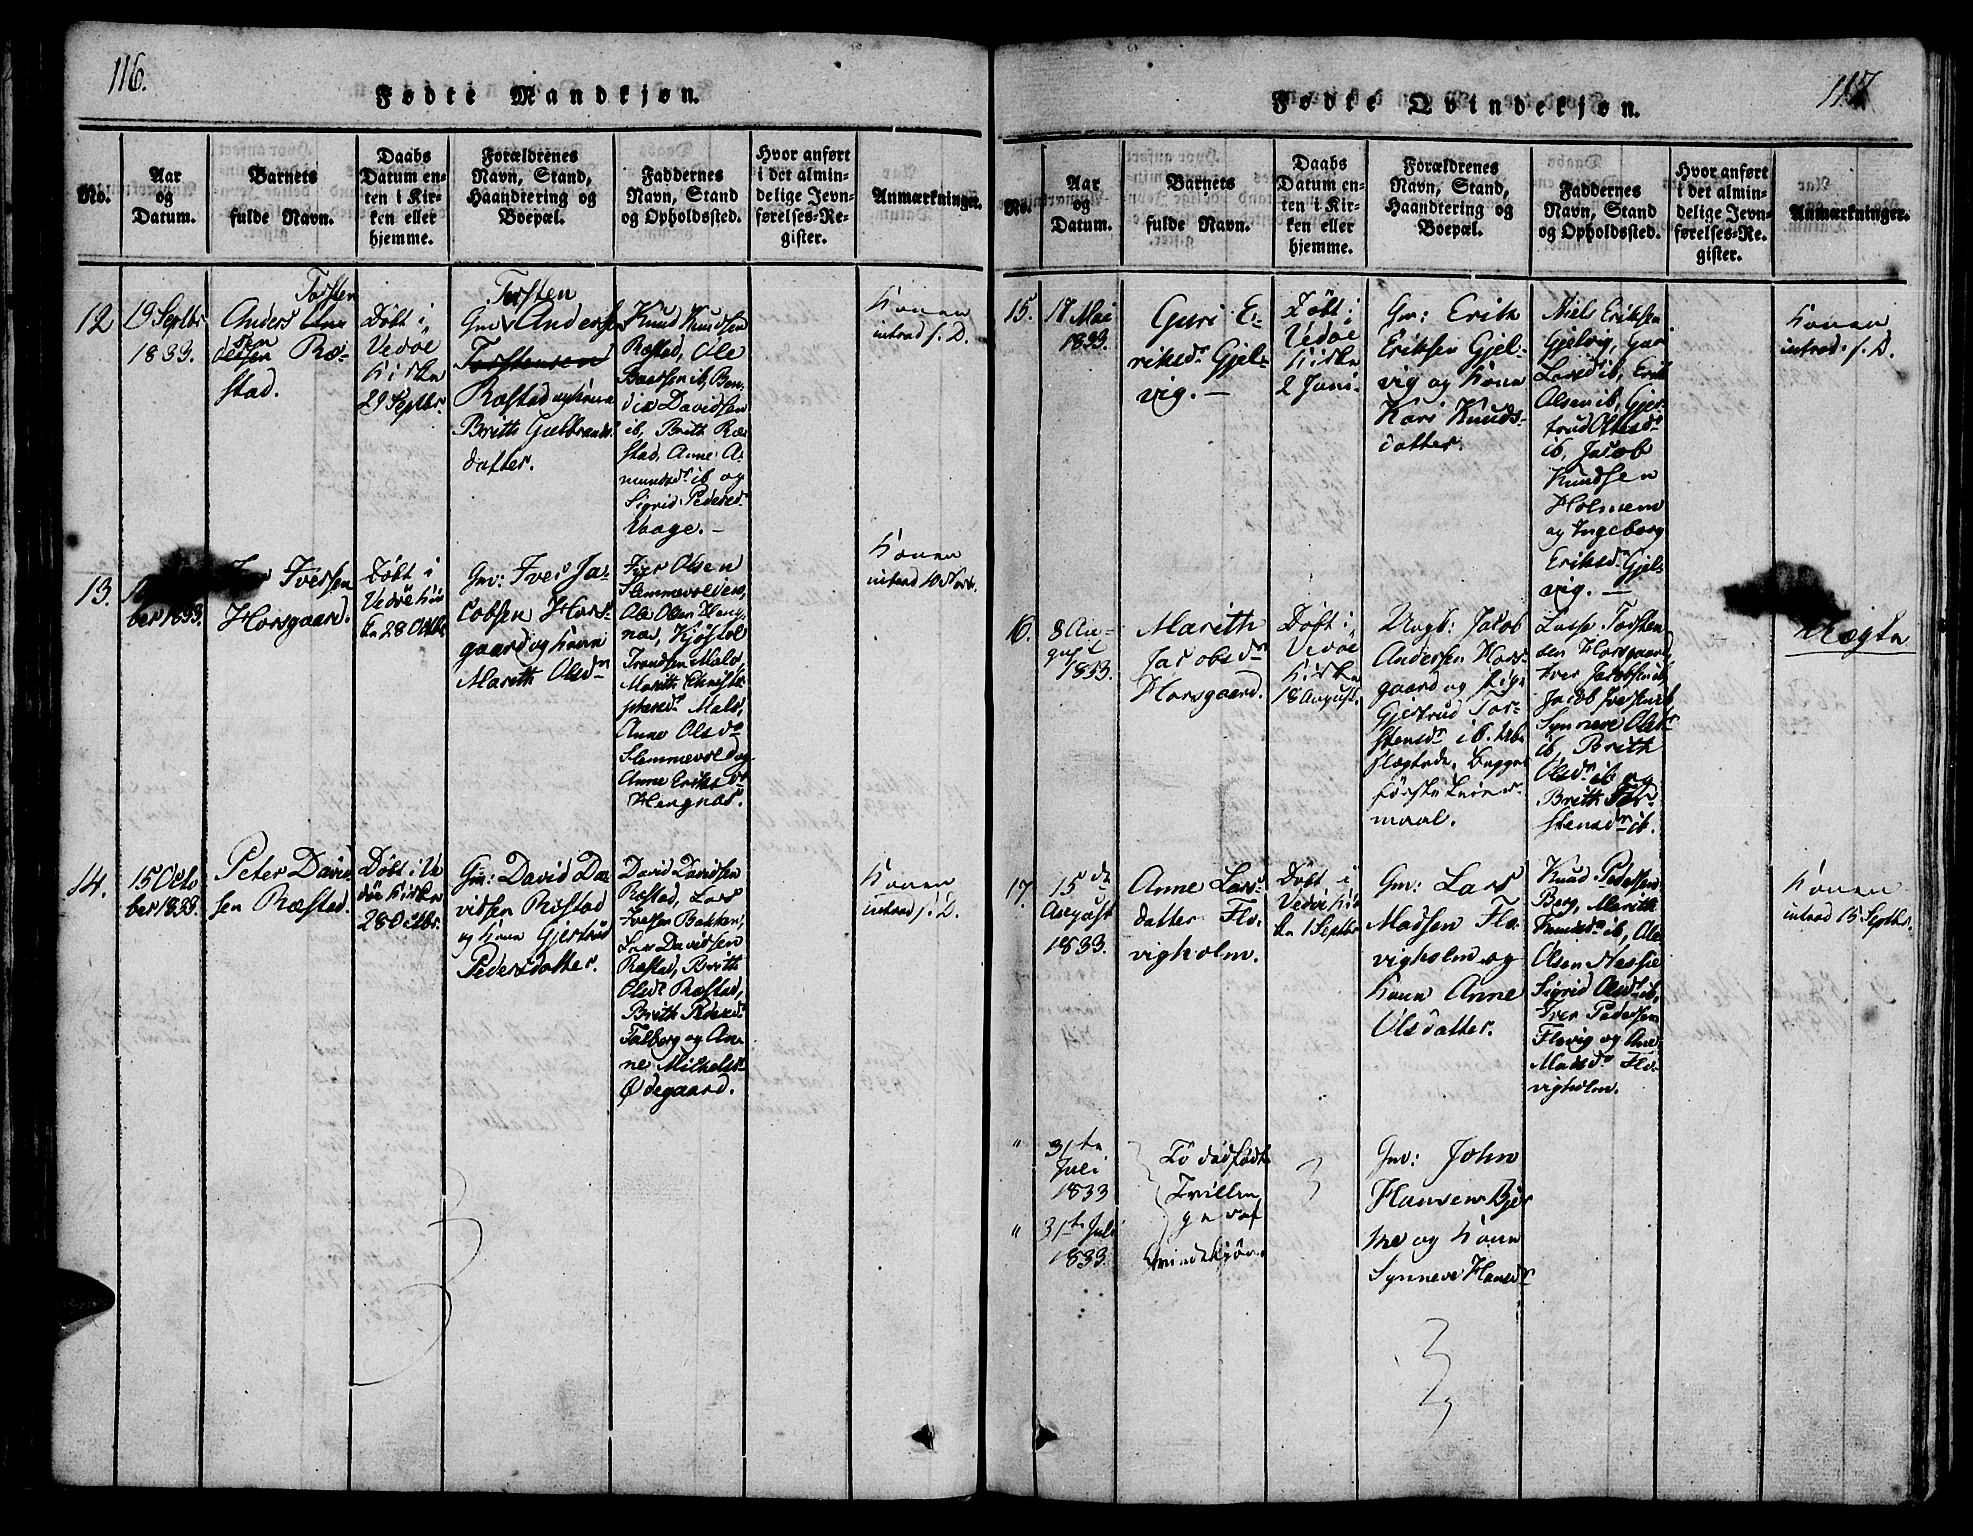 116.
Fødte Mandkjøn.
No.
Aar
og
Datum.
Barnets
fulde Navn.
Daabs
Datum en-
ten i Kir-
ken eller
hjemme.
Forældrenes
Navn, Stand,
Haandtering og
Boepæl.
Faddernes
Navn, Stand
og Opholdssted.
Hvor anført
i det almin-
delige Jevn-
førelses-Re-
gister.
Anmærkninger.
12
19 Septbr
1833.
Torsten
Anders
sen Ræ-
stad.
Døbt i
Vedøe
Kirke
29 Septbr.
Torsten
Gm: Anders
Torstensen
Ræstad og Kone
Brith Gulbrands
datter.
Knud Knudsen
Ræstad, Ole
Baarsen ib, Ben-
dix Davidsen
ib, Brith Ræ-
stad, Anne A-
mundsdr ib og
Sigrid Pedersdr
Vaage.
Konen
introd s. D.
13.
ber 1833.
Iversen
Horsgaard.
Døbt i
Vedøe Kir
ke 28 Octbr
Gm: Iver Ja-
cobsen Hors-
gaard og Kone
Marith Olsdr
Iver Olsen
Slemmevolden,
Ole Olsen Heng-
næs, Kjøstel
Trondsen Malo,
Marith Christo-
phersdr Malo,
Anne Olsdr
Slemmevold og
Anne Eriksdr
Hengnæs.
Konen
introd 10 Novbr.
14.
15 Octo
ber 1833.
Peter David
sen Ræstad.
Døbt i Ve
døe Kirke
28 Octbr.
Gm: David Da
vidsen Ræstad
og Kone Gjertrud
Pedersdatter.
David Davidsen
Ræstad, Lars
Iversen Bakken,
Lars Davidsen
Ræstad, Brith
Olsdr Ræstad,
Brith Pedersdr
Talberg og An-
ne Michelsdr
Ødegaard.
Konen
introd s. D.
117
Fødte Qvindekjøn.
No.
Aar
og
Datum.
Barnets
fulde Navn.
Daabs
Datum en-
ten i Kir-
ken eller
hjemme.
Forældrenes
Navn, Stand,
Haandtering og
Boepæl.
Faddernes
Navn, Stand
og Opholdssted.
Hvor anført
i det almin-
delige Jevn-
førelses-Re-
gister.
Anmærkninger.
15.
18 Mai
1833.
Guri E-
riksdr Gjel-
vig.
Døbt i
Vedøe
Kirke
2 Juni.
Gm: Erik
Eriksen Gjel-
vig og Kone
Kari Knuds-
datter.
Niels Eriksen
Gjelvig, Guri
Larsd ib, Erik
Olsen ib, Gjer-
trud Olsdr
ib, Jacob
Knudsen
Holmem
og Ingeborg
Eriksdr Gjel-
vig.
Konen
introd. s. D.
16.
8 Au-
gust
1833.
Marith
Jacobsdr
Horsgaard.
Døbt i
Vedøe
Kirke
18 August.
Ungk: Jacob
Andersen Hors-
gaard og Pige
Gjertrud Tor-
stensdr ib. Ube-
slægtede, Begges
første Leier-
maal.
Lasse Torsten
sen Horsgaard,
Iver Jacobsen ib,
Jacob Iversen ib,
Synneve Olsdr
ib, Brith
Olsdr ib og
Brith Tor-
stensdr ib.
Uægte
17.
15de
August
1833.
Anne Lars-
datter Flo-
vigholm.
Døbt i
Vedøe Kir
ke 1 Septbr
Gm: Lars
Madsen Flo-
vigholm og
Kone Anne
Olsdatter.
Knud Pedersen
Berg, Marith
Knudsdr ib, Ole
Olsen Nessie
Sigrid Olsdr ib,
Iver Pedersen
Flovig og Ane
Madsdr Flo-
vigholm.
Konen
introd 15 Septbr.
"
31te
Juli
1833
"
31te Juli
1833.
To dødfødte
Tvillin
ger af
Qvindekjøn.
Gm: John
Hansen Bjer
ke og Kone
Synneve Hansdr